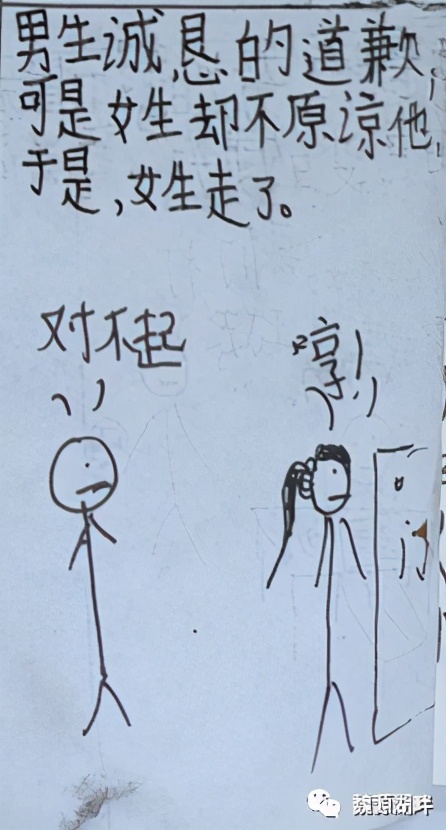 男生诚恳的道歉,
可是女生却不原谅他,
于是,女生走了。
对不起
哼!
门
魏源湖畔